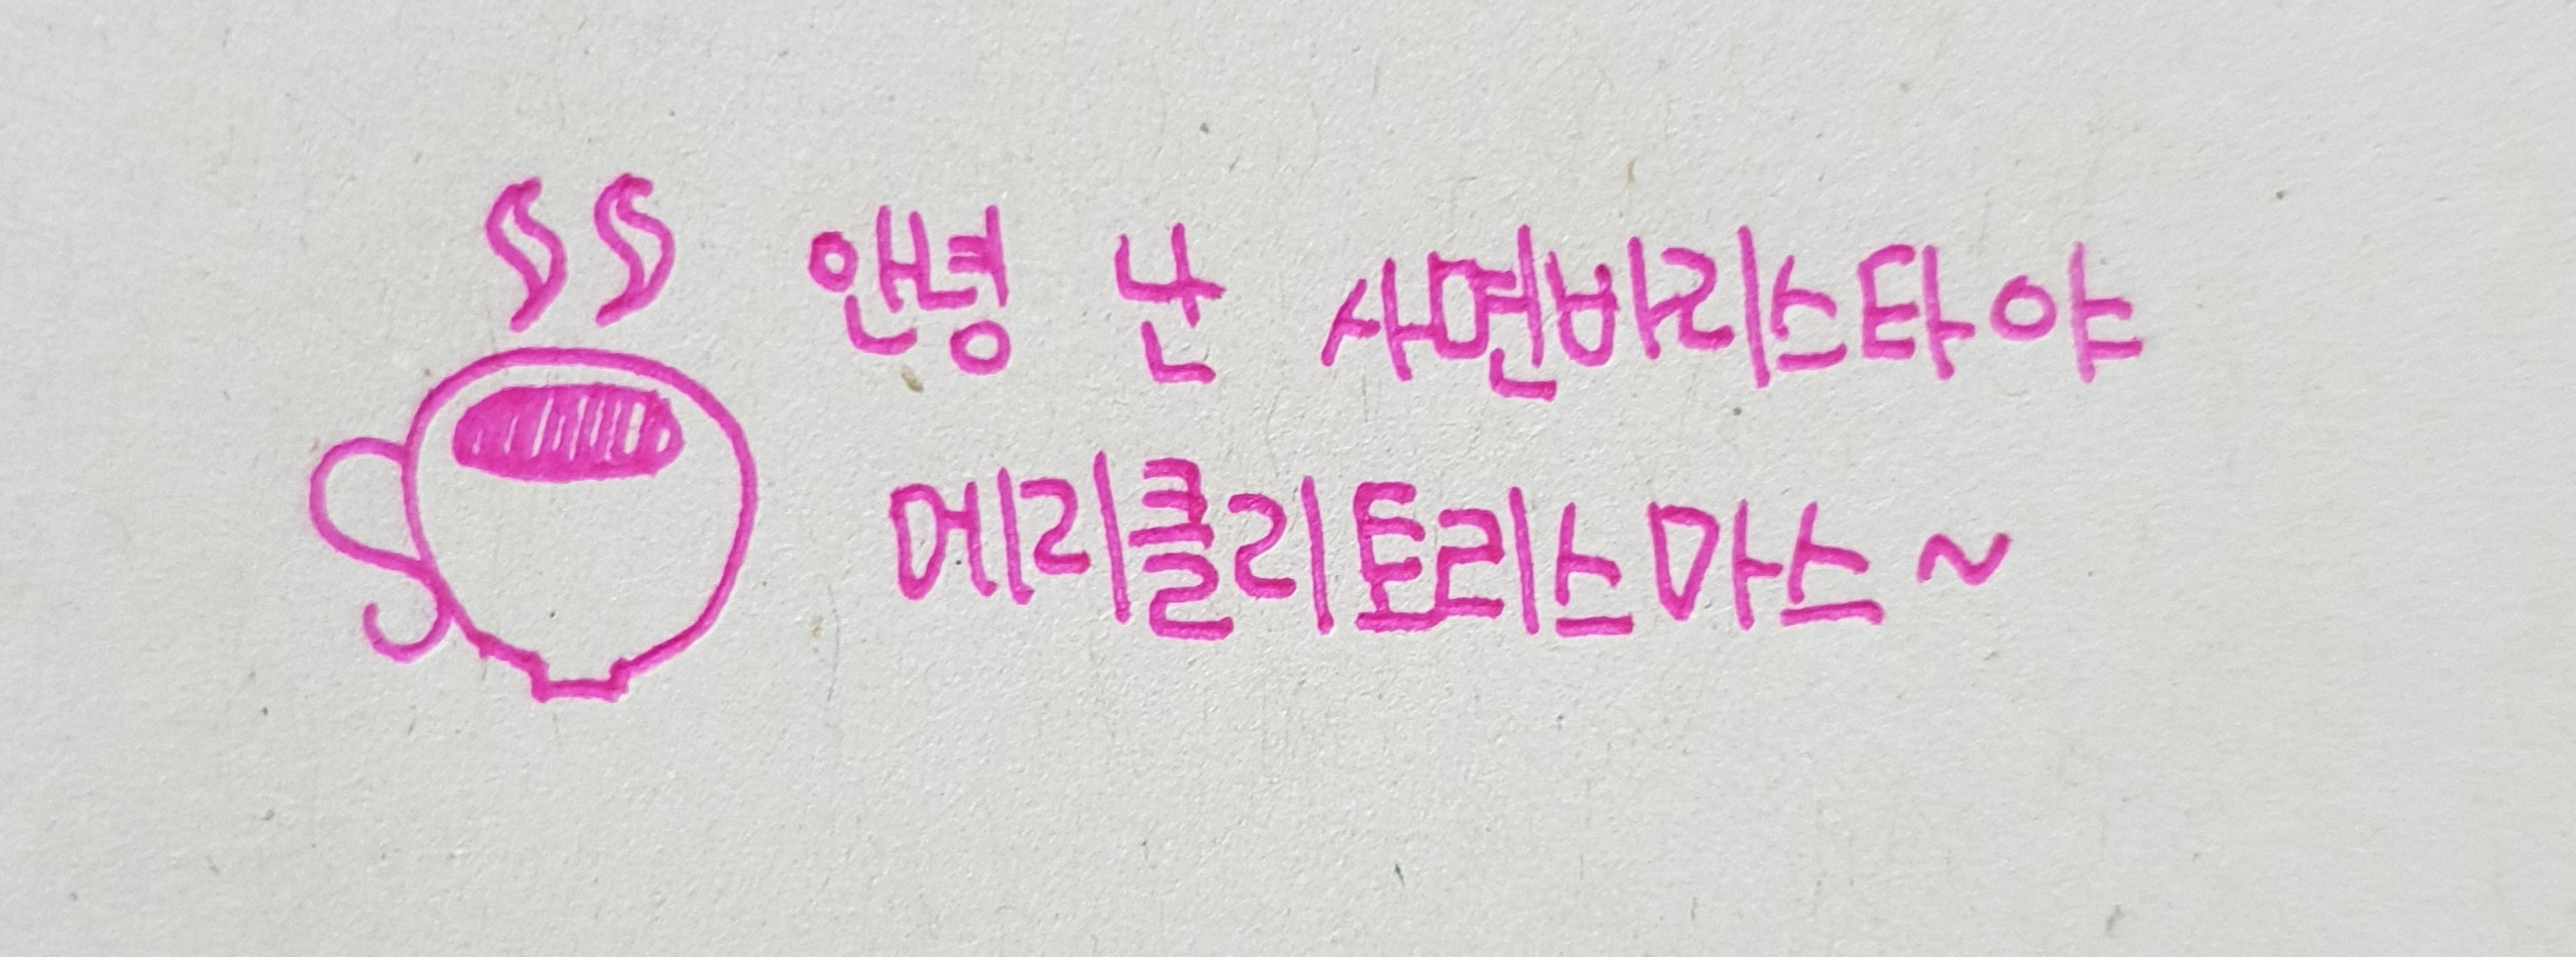 안녕 난 사면바리스타야
메리클리토리스마스~